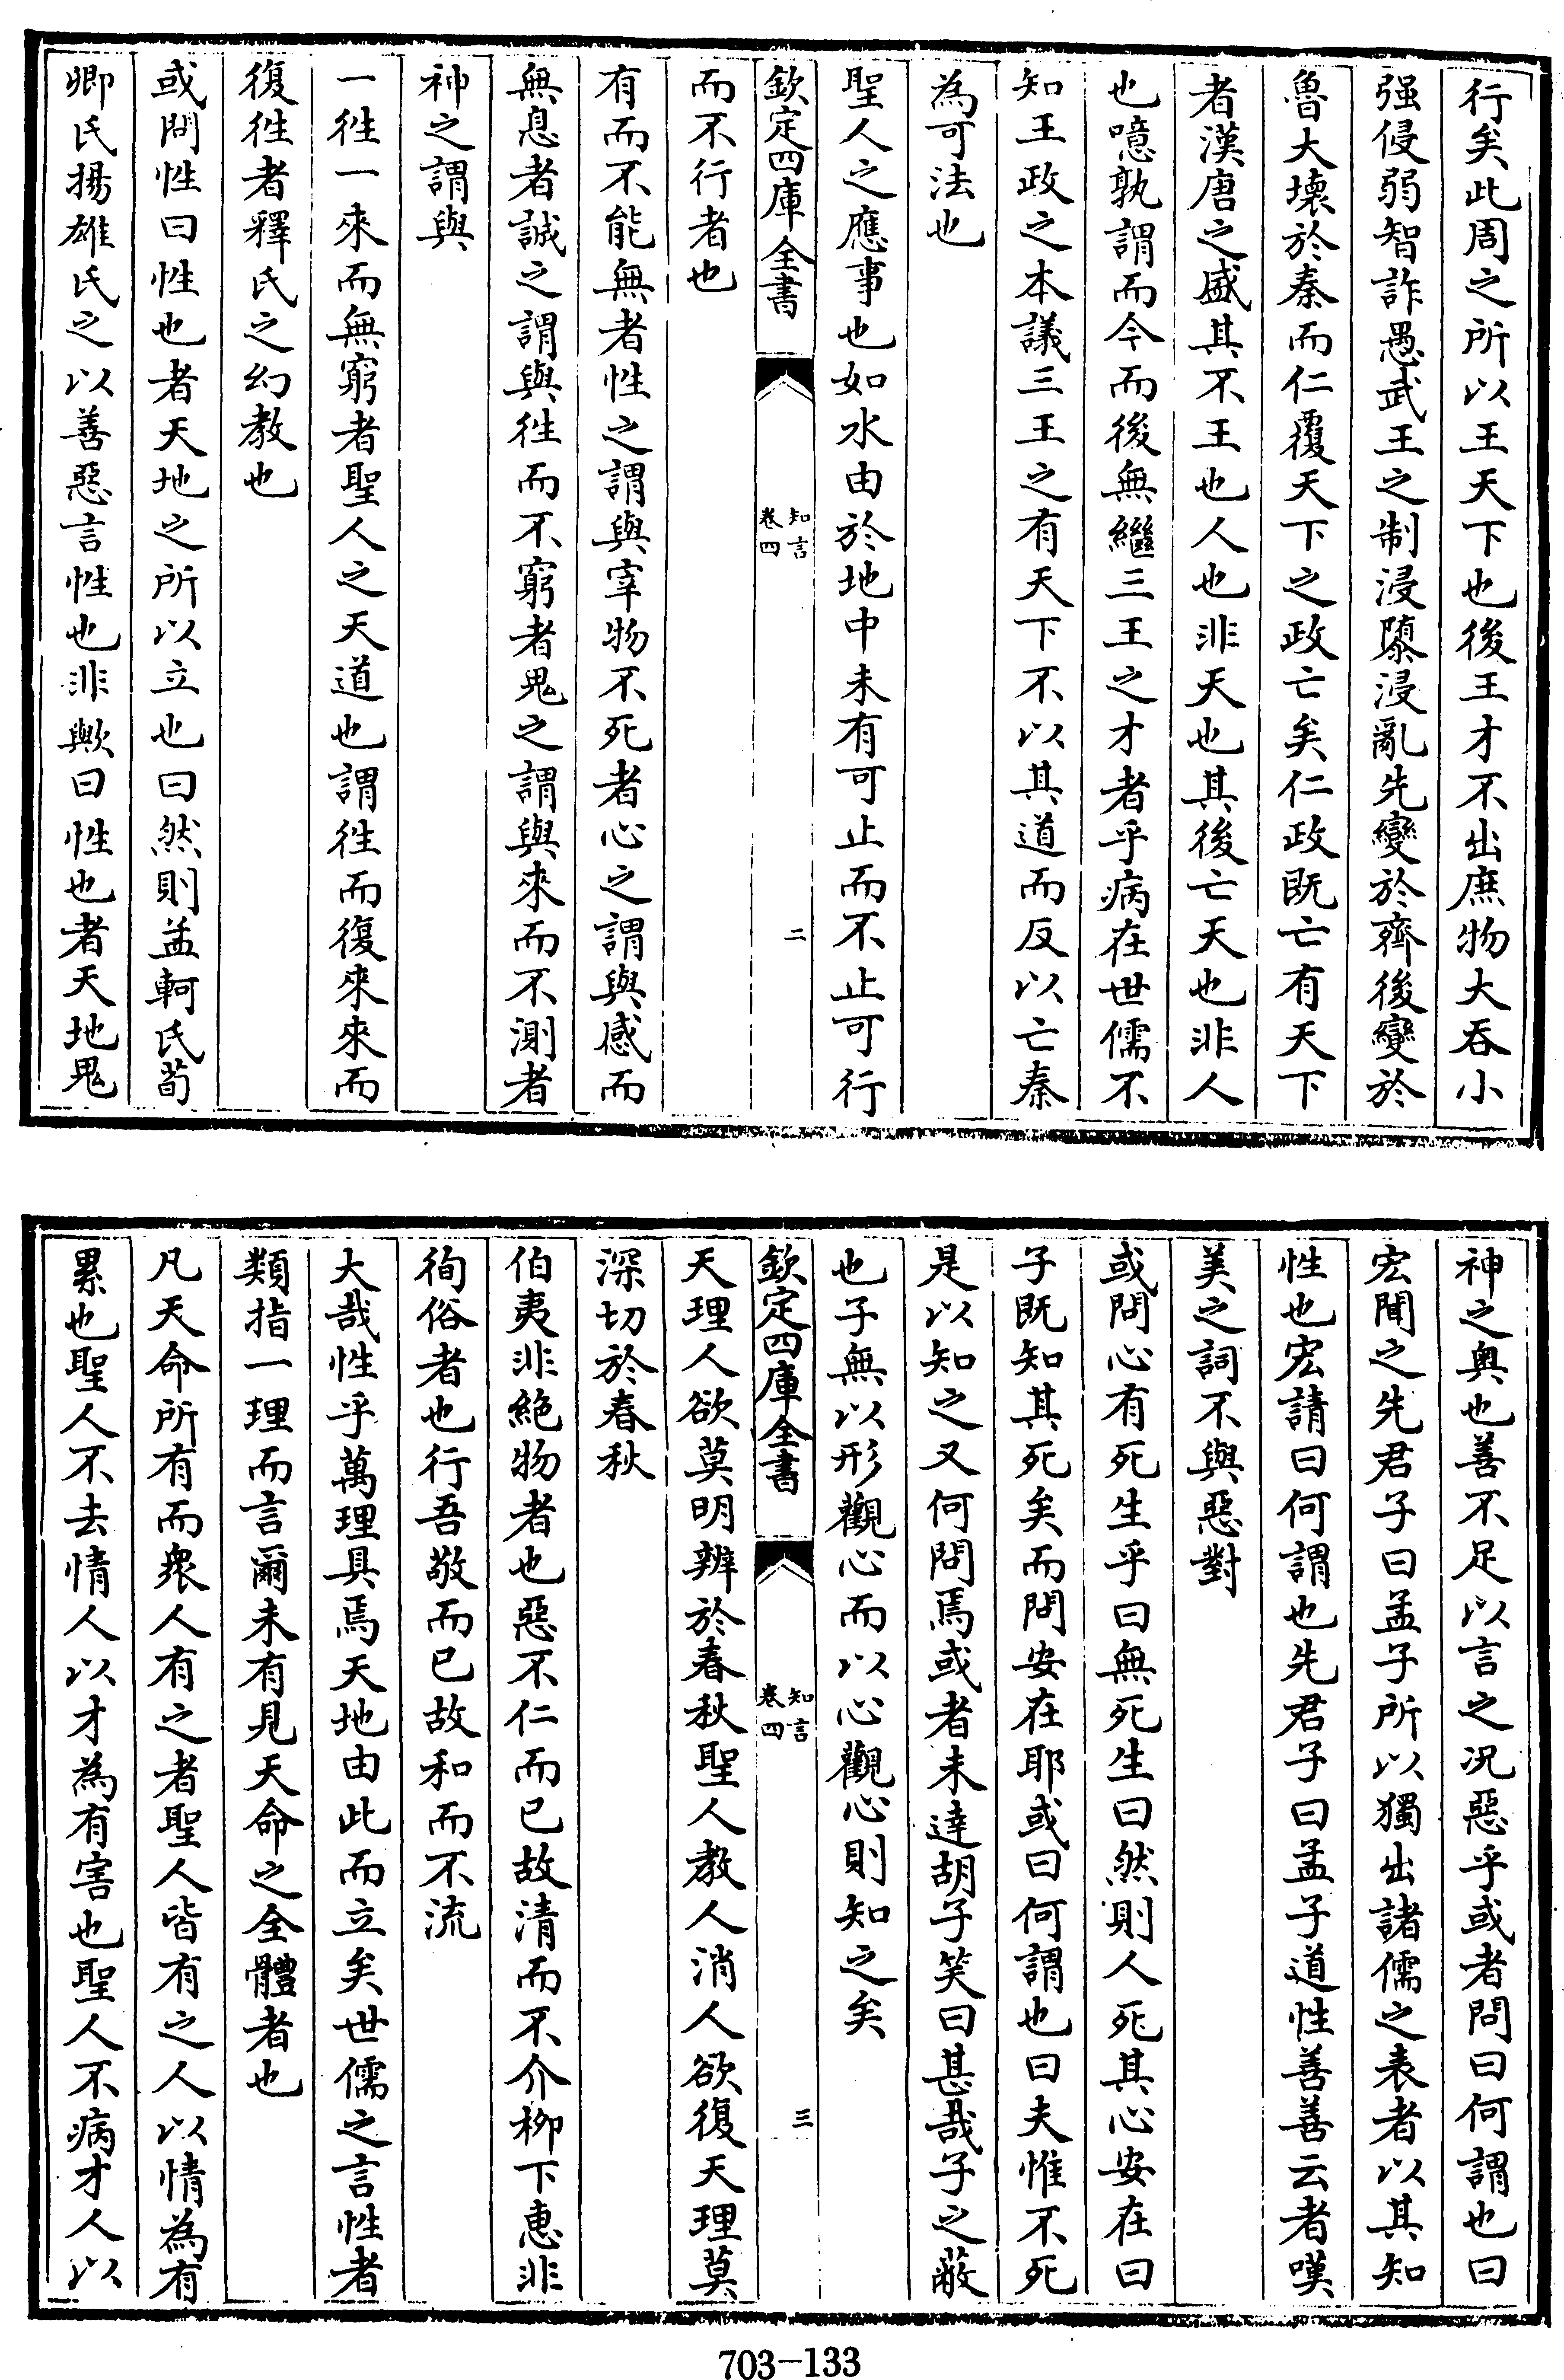 行矣此周之所以王天下也後王才不出庶物大吞小
强侵弱智詐愚武王之制浸隳浸亂先變於齊後變於
魯大壞於秦而仁覆天下之政亡矣仁政既亡有天下
者漢唐之盛其不王也人也非天也其後亡天也非人
也噫孰謂而今而後無繼三王之才者乎病在世儒不
知王政之本議三王之有天下不以其道而反以亡秦
為可法也
聖人之應事也如水由於地中未有可止而不止可行
欽定四庫全書
知言
卷四
二
而不行者也
有而不能無者性之謂與宰物不死者心之謂與感而
無息者誠之謂與徃而不窮者鬼之謂與來而不測者
神之謂與
一徃一來而無窮者聖人之天道也謂徃而復來來而
復徃者釋氏之幻教也
或問性曰性也者天地之所以立也曰然則孟軻氏荀
卿氏揚雄氏之以善惡言性也非歟曰性也者天地鬼
神之奥也善不足以言之况惡乎或者問曰何謂也曰
宏聞之先君子曰孟子所以獨出諸儒之表者以其知
性也宏請曰何謂也先君子曰孟子道性善善云者嘆
美之詞不與惡對
或問心有死生乎曰無死生曰然則人死其心安在曰
子既知其死矣而問安在耶或曰何謂也曰夫惟不死
是以知之又何問焉或者未達胡子笑曰甚哉子之蔽
也子無以形觀心而以心觀心則知之矣
欽定四庫全書
知言
卷四
三
天理人欲莫明辨於春秋聖人教人消人欲復天理莫
深切於春秋
伯夷非絶物者也惡不仁而已故清而不介柳下惠非
徇俗者也行吾敬而已故和而不流
大哉性乎萬理具焉天地由此而立矣世儒之言性者
類指一理而言爾未有見天命之全體者也
凡天命所有而衆人有之者聖人皆有之人以情為有
累也聖人不去情人以才為有害也聖人不病才人以
703-133